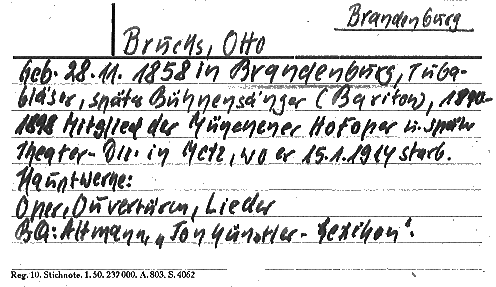 Brandenburg
Brucks, Otto
Geb. 28.11. 1858 in Brandenburg, Tuba-
bläser, später Bühnensänger (Bariton), 1890-
1898 Mitglied der Münchener Hofoper u. später
Theater-Dir. in Metz, wo er 15.1.1914 starb.
Hauptwerke:
Oper, Ouvertüren, Lieder
BQ: Altmann, "Tonkünstler-Lexikon".
Reg. 10. Stichnote. 1. 50. 237000. A. 803. S. 4062